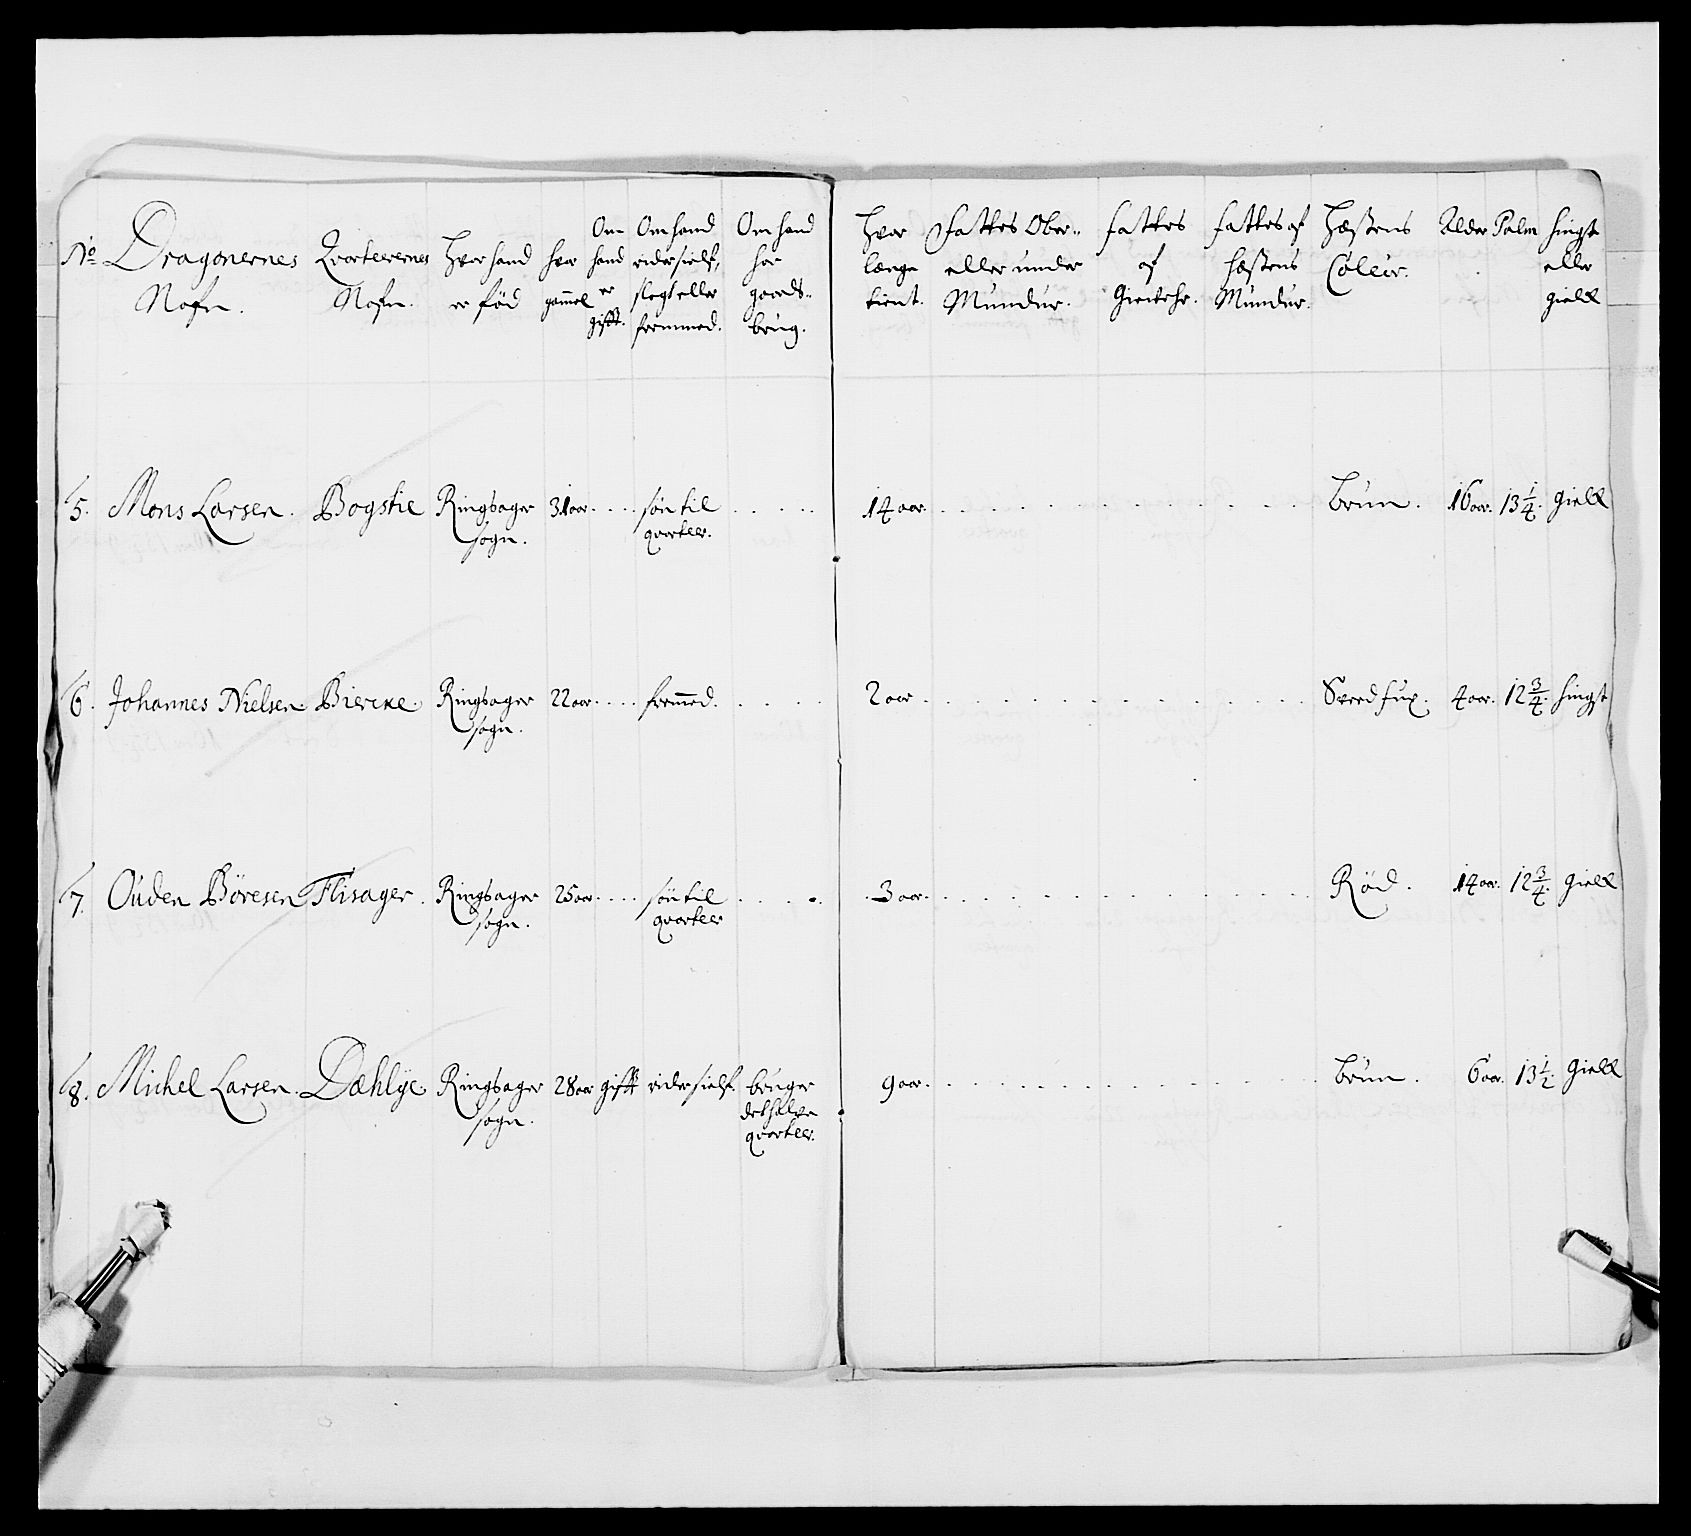 No Dragonernes Nafn. Qvarteerernes Nafn. Hvor hand er fød hvor gammel Om hand er gifft. Om hand rider sielf, slegt eller fremmed. Om hand har gaards-brug. Hvor længe tient. Fattes Ober- eller under Mundur. fattes af Giewehr. fattes af Hæstens Mundur. Hæstens Coleur. Alder Palm hingst eller gield
5. Mons Larsen. Bogstie Ringsager sogn. 31 aar. søn til qvarteer. 14 aar. brun. 16 aar. 13 1/4. gield
6. Johannes Nielsen Biercke. Ringsager sogn. 22 aar. fremmed. 2 aar. Sveedfux. 4 aar. 12 3/4. hingst
7. Ouden Børesen Flisager. Ringsager sogn. 25 aar. søn til qvarteer 3 aar. Rød. 14 aar. 12 3/4. gield
8. Michel Larsen. Dæhlije. Ringsager sogn. 28 aar gifft rider sielf. bruger det halve qvarteer. 9 aar. brun. 6 aar. 13 1/2. gield